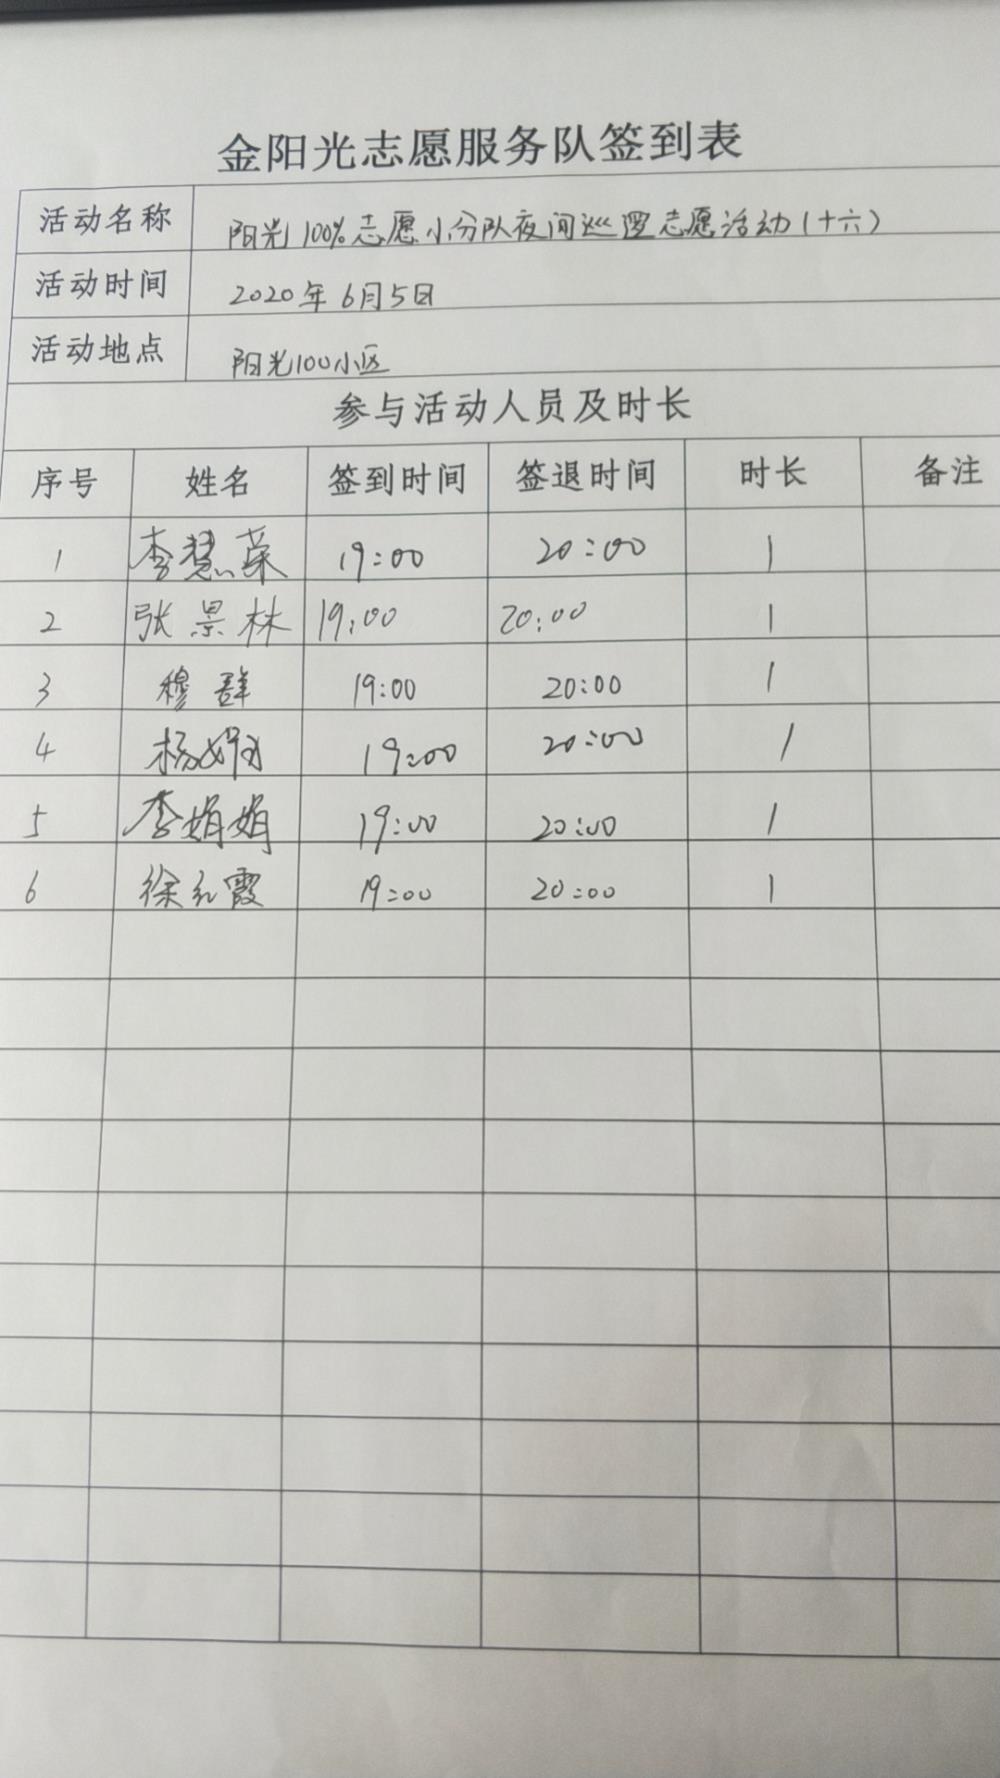 金阳光志愿服务队签到表
活动名称 阳光100%志愿小分队夜间巡逻志愿活动(十六)
活动时间 2020年6月5日
活动地点 阳光100小区
参与活动人员及时长
序号 姓名 签到时间 签退时间 时长 备注
1 李慧荣 19:00 20:00 1
2 张景林 19:00 20:00 1
3 穆群 19:00 20:00 1
4 19:00 20:00 1
5 李娟娟 19:00 20:00 1
6 徐红霞 19:00 20:00 1